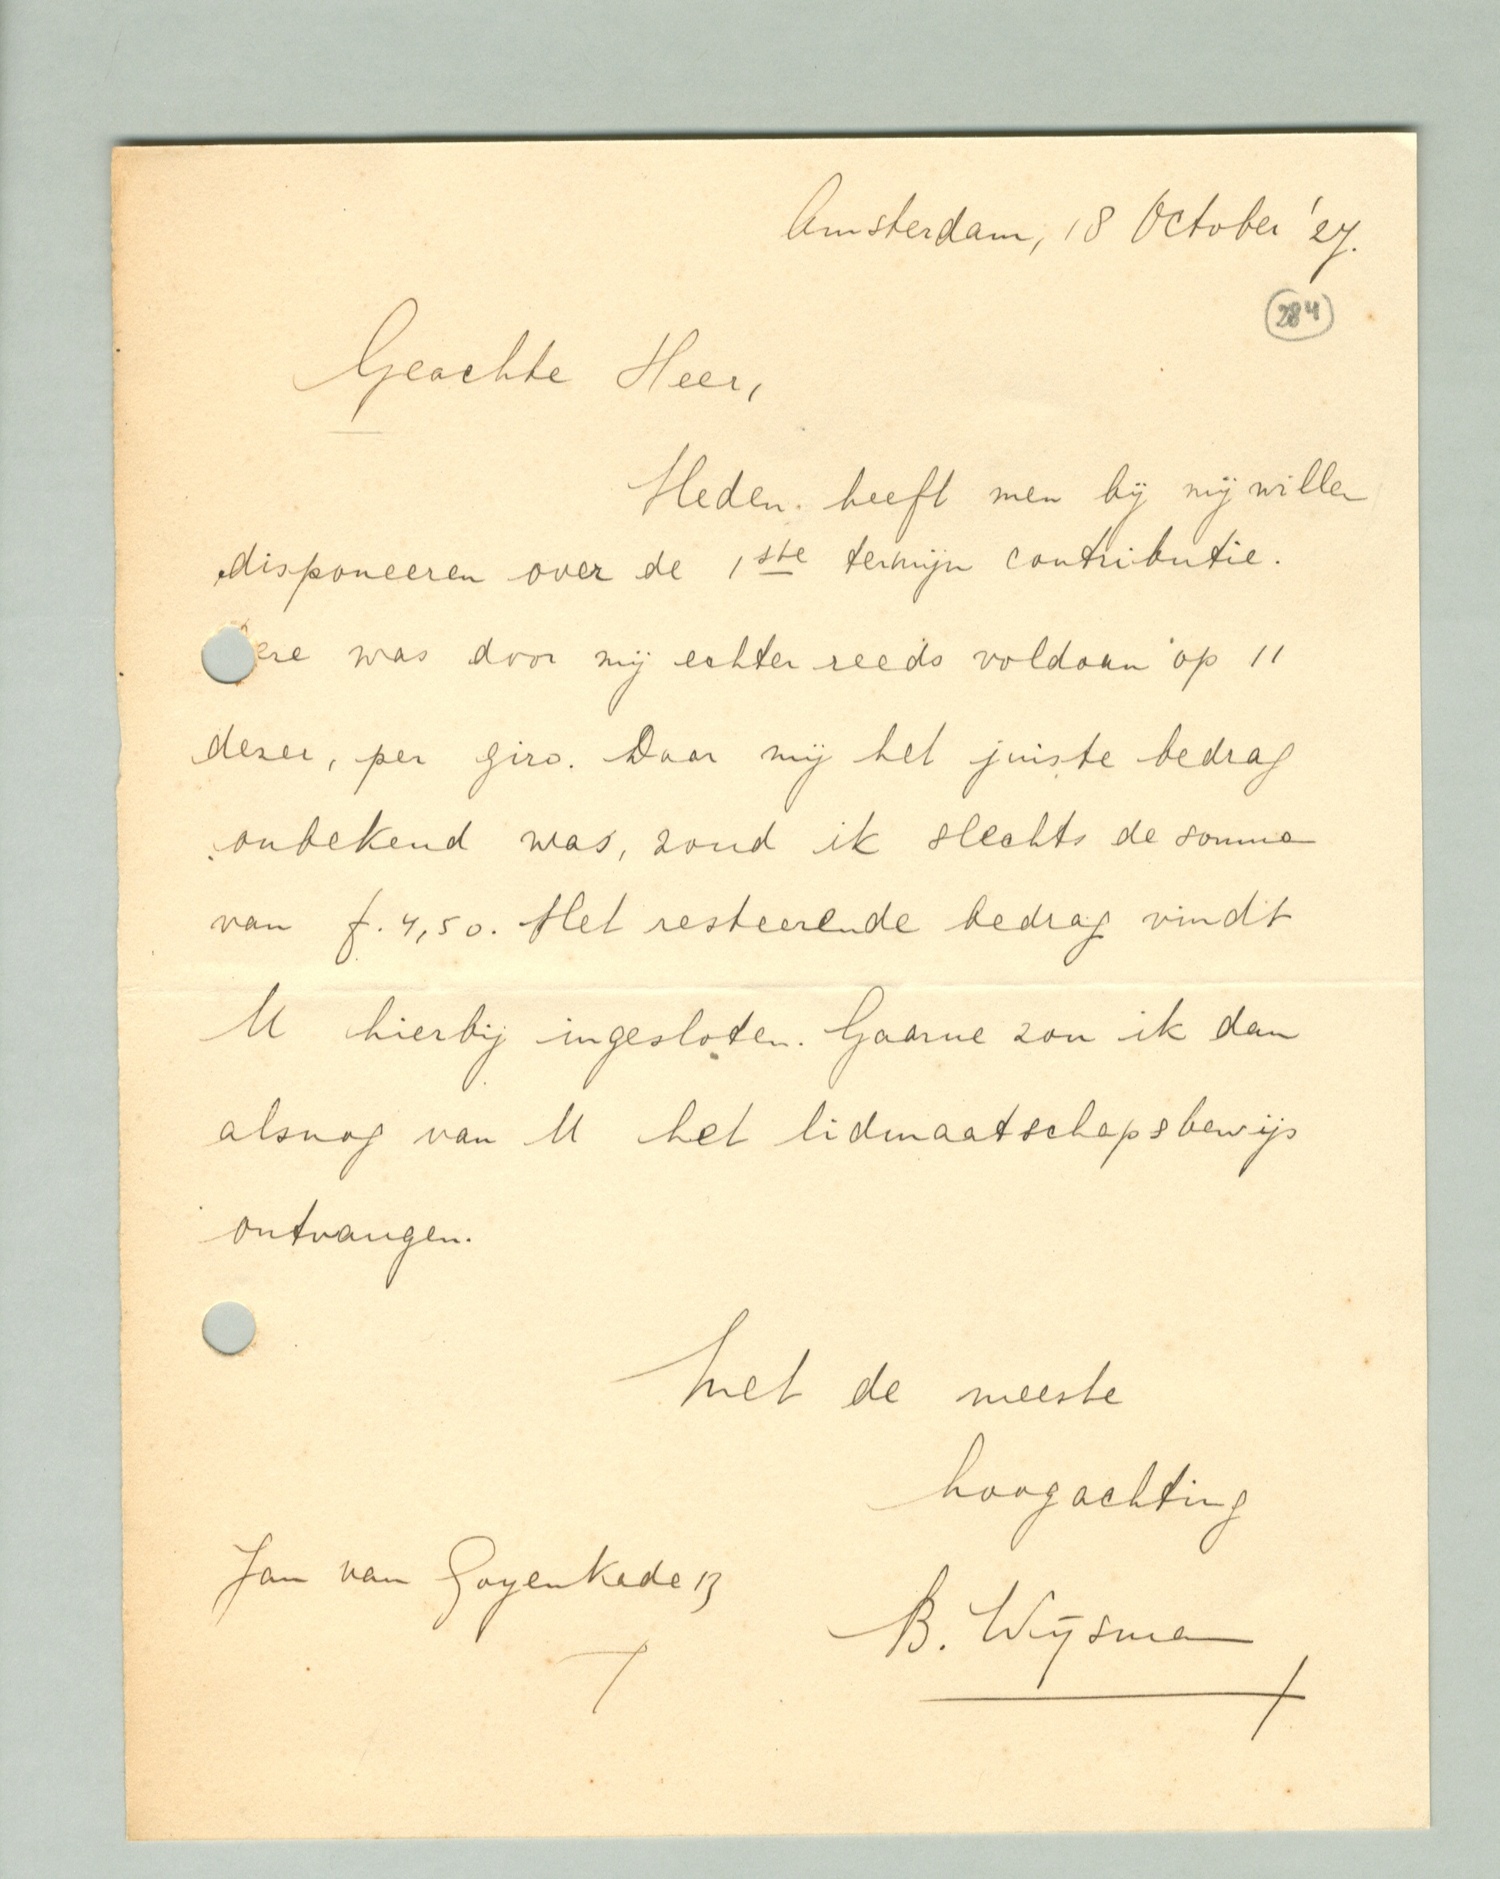 Amsterdam, 18 October '27.
284
Geachte Heer,
Heden heeft men bij mij willen
disponeeren over de 1ste termijn contributie.
ere was door mij echter reeds voldaan op 11
dezer, per giro. Daar mij het juiste bedrag
onbekend was, zond ik slechts de somma
van f. 4,50. Het resteerende bedrag vindt
U hierbij ingesloten. Gaarne zou ik dan
alsnog van U het lidmaatschapsbewijs
ontvangen.
Met de meeste
hoogachting
Jan van Goyenkade 13
B. Wijsman